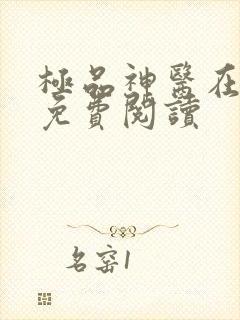 極品神醫在
免費閱讀
名窑1